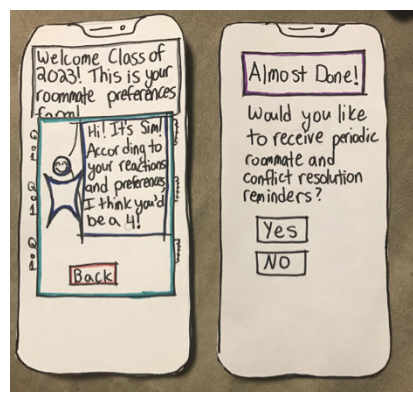 Welcome Class of
2023! This is your
roommate preferences
form!
Hi! It's Sim!
According to
your reactions
and preferences,
I think you'd
be a 4!
Q
01
Q
01
Q
01
Back
Almost Done!
Would you like
to receive periodic
roommate and
conflict resolution
reminders?
Yes
NO